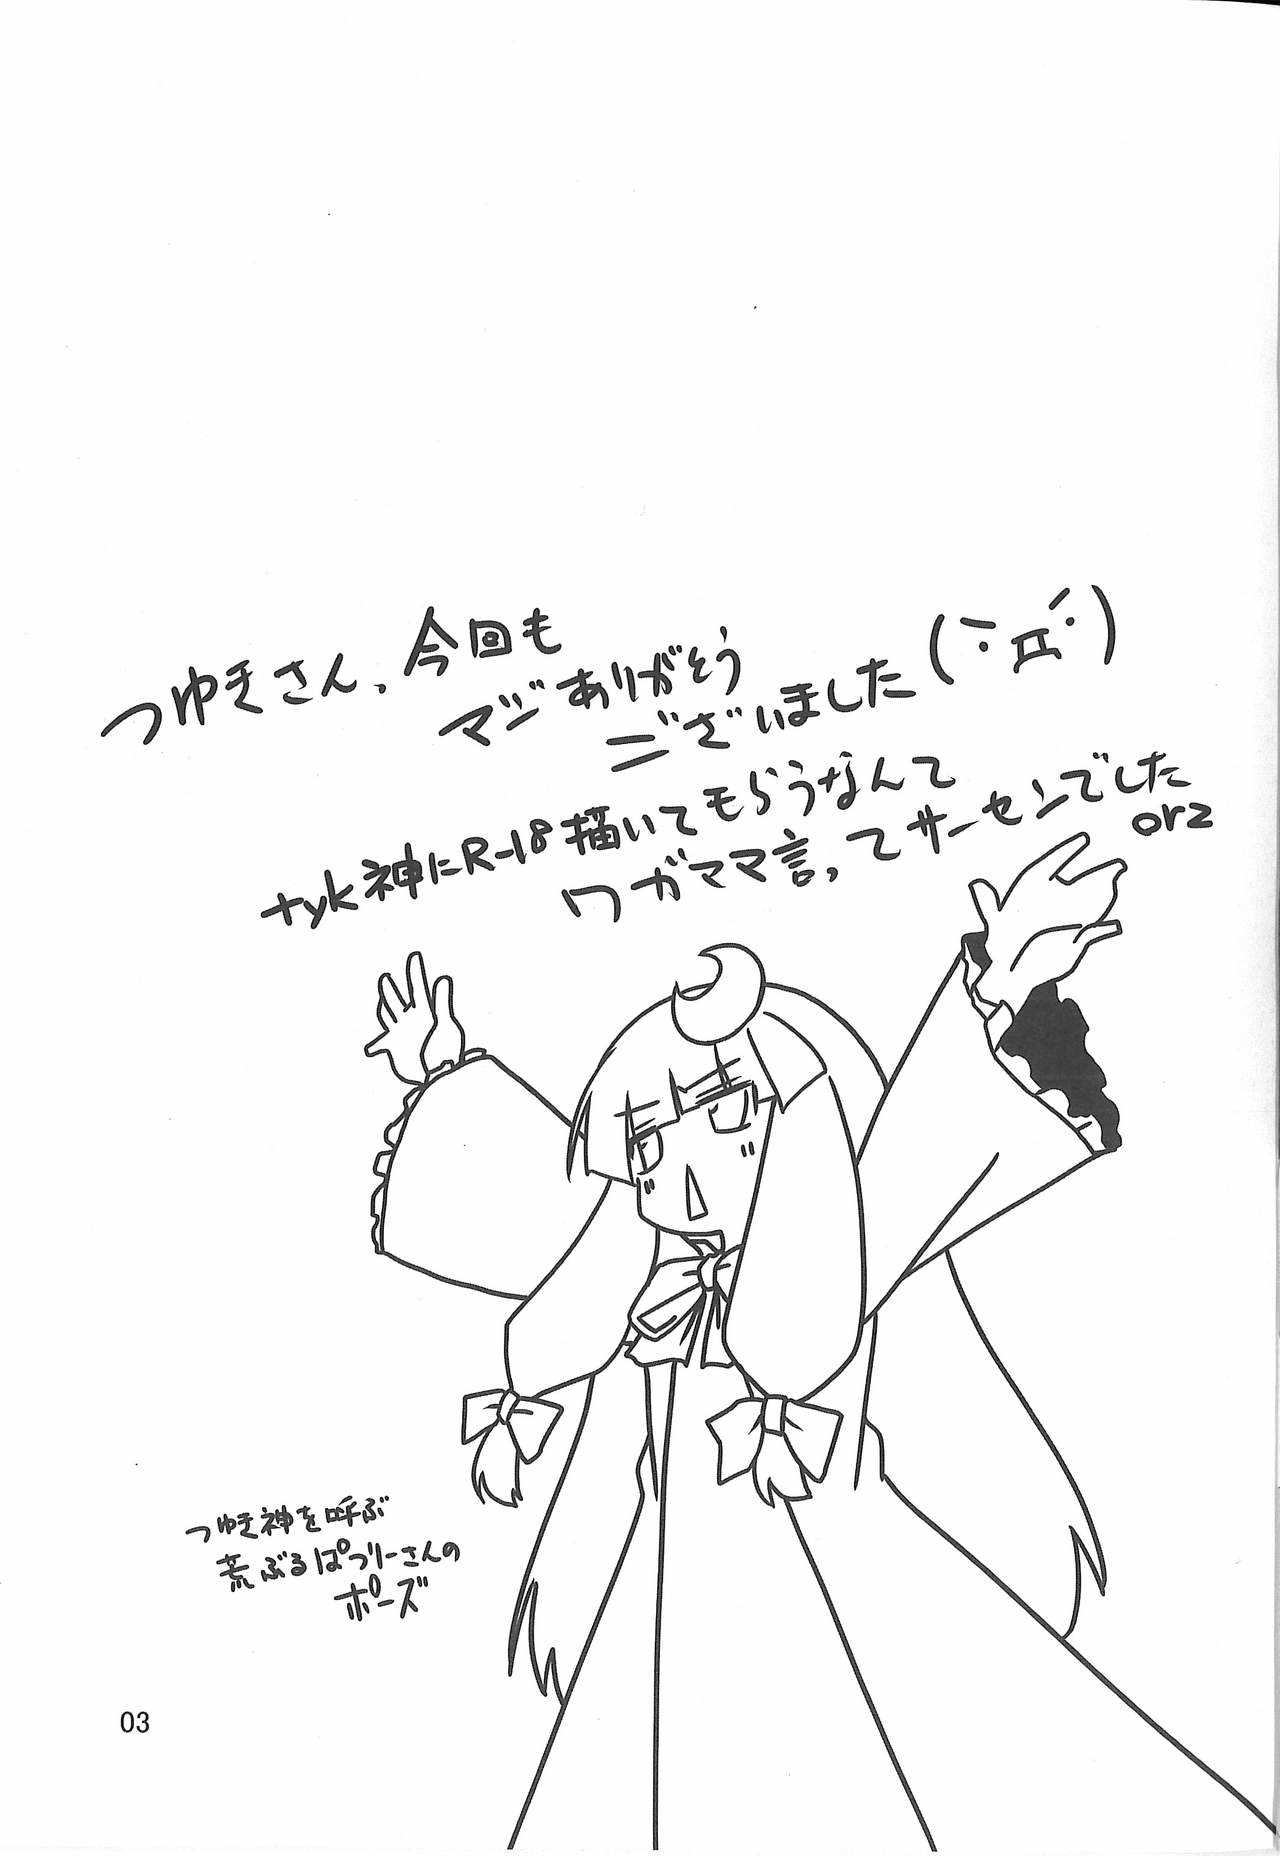 つゆきさん、今回も
マジありがとう
ございました(｀・д・´)
tyk神にR-18描いてもらうなんて
ワガママ言ってサーセンでした
orz
つゆき神を呼ぶ
荒ぶるぱつりーさんの
ポーズ
03